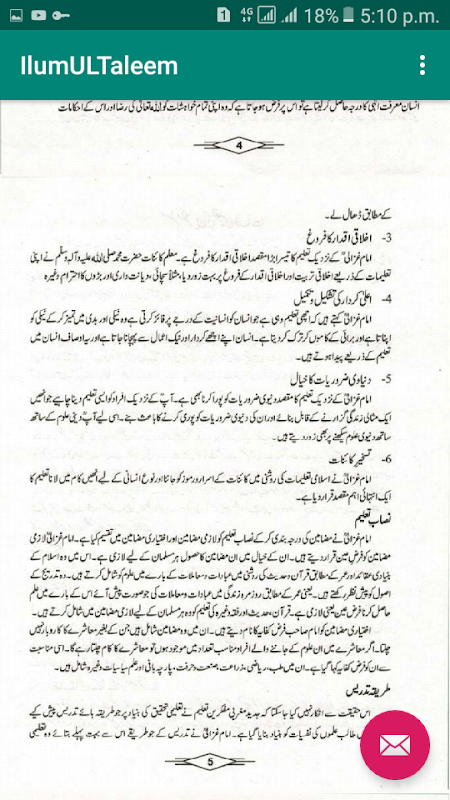 1 4G 18% 5:10 p.m.
IlumULTaleem
انسان معرفت الٰہی کا درجہ حاصل کر لیتا ہے تو اس پر فرض ہو جاتا ہے کہ وہ اپنی تمام خواہشات کو اللہ تعالیٰ کی رضا اور اس کے احکامات
4
کے مطابق ڈھال لے۔
3- اخلاقی اقدار کا فروغ
امام غزالیؒ کے نزدیک تعلیم کا تیسرا بڑا مقصد اخلاقی اقدار کا فروغ ہے۔ معلم کائنات حضرت محمد صلی اللہ علیہ وآلہ وسلم نے اپنی
تعلیمات کے ذریعے اخلاقی تربیت اور اخلاقی اقدار کے فروغ پر بہت زور دیا، مثلاً سچائی، دیانت داری اور بڑوں کا احترام وغیرہ
4- اعلیٰ کردار کی تشکیل و تکمیل
امام غزالیؒ کہتے ہیں کہ اچھی تعلیم وہی ہے جو انسان کو انسانیت کے درجے پر فائز کرتی ہے وہ نیکی اور بدی میں تمیز کر کے نیکی کو
اپناتا ہے اور برائی کے کاموں کو ترک کر دیتا ہے۔ انسان اپنے اچھے کردار اور نیک اعمال سے پہچانا جاتا ہے اور یہ اوصاف انسان میں
تعلیم کے ذریعے پیدا ہوتے ہیں۔
5- دنیاوی ضروریات کا خیال
امام غزالیؒ کے نزدیک تعلیم کا مقصد دنیوی ضروریات کو پورا کرنا بھی ہے۔ آپؒ کے نزدیک افراد کو ایسی تعلیم دینا چاہیے جو انھیں
ایک مثالی زندگی گزارنے کے قابل بنائے اور ان کی دنیوی ضروریات کو پوری کرنے کا باعث بنے۔ اسی لیے آپؒ دینی علوم کے ساتھ
ساتھ دنیوی علوم سیکھنے پر بھی زور دیتے ہیں۔
6- تسخیر کائنات
امام غزالیؒ نے اسلامی تعلیمات کی روشنی میں کائنات کے اسرار و رموز کو جاننا اور نوع انسانی کے لیے انھیں کام میں لانا تعلیم کا
ایک انتہائی اہم مقصد قرار دیا ہے۔
نصاب تعلیم
امام غزالیؒ نے مضامین کی درجہ بندی کر کے نصاب تعلیم کو لازمی مضامین اور اختیاری مضامین میں تقسیم کیا ہے۔ امام غزالیؒ لازمی
مضامین کو فرض عین قرار دیتے ہیں۔ ان کے خیال میں ان مضامین کا حصول ہر مسلمان کے لیے لازمی ہے۔ اس میں وہ اسلام کے
بنیادی عقائد اور عمر کے مطابق قرآن و حدیث کی روشنی میں عبادات و معاملات کے بارے میں علوم کو شامل کرتے ہیں۔ وہ تدریج کے
اصول کو پیش نظر رکھتے ہیں۔ یعنی عمر کے مطابق روزمرہ زندگی میں عبادات و معاملات کی جو صورت پیش آئے اس کے بارے میں علم
حاصل کرنا فرض عین یعنی لازمی ہے۔ قرآن، حدیث اور فقہ وغیرہ کی تعلیم کو وہ ہر مسلمان کے لیے لازمی مضامین میں شامل کرتے ہیں۔
اختیاری مضامین کو امام صاحب فرض کفایہ کا نام دیتے ہیں۔ ان میں وہ مضامین شامل ہیں جن کے بغیر معاشرے کا کاروبار نہیں
چلتا۔ اگر معاشرے میں ان علوم کے جاننے والے افراد مناسب تعداد میں موجود ہوں تو معاشرے کا کام چلتا رہے گا۔ اسی مناسبت
سے ان کو فرض کفایہ کہا گیا ہے۔ ان میں طب، ریاضی، زراعت، صنعت و حرفت، پارچہ بافی اور علم سیاسیات وغیرہ شامل ہیں۔
طریقہ تدریس
اس حقیقت سے انکار نہیں کیا جا سکتا کہ جدید مغربی مفکرین تعلیم نے تعلیمی تحقیق کی بنیاد پر جو طریقہ ہائے تدریس پیش کیے
میں طالب علموں کی نفسیات کو بنیاد بنایا گیا ہے۔ امام غزالیؒ نے تدریس کے جو طریقے اس سے بہت پہلے بتائے وہ تعلیمی
5